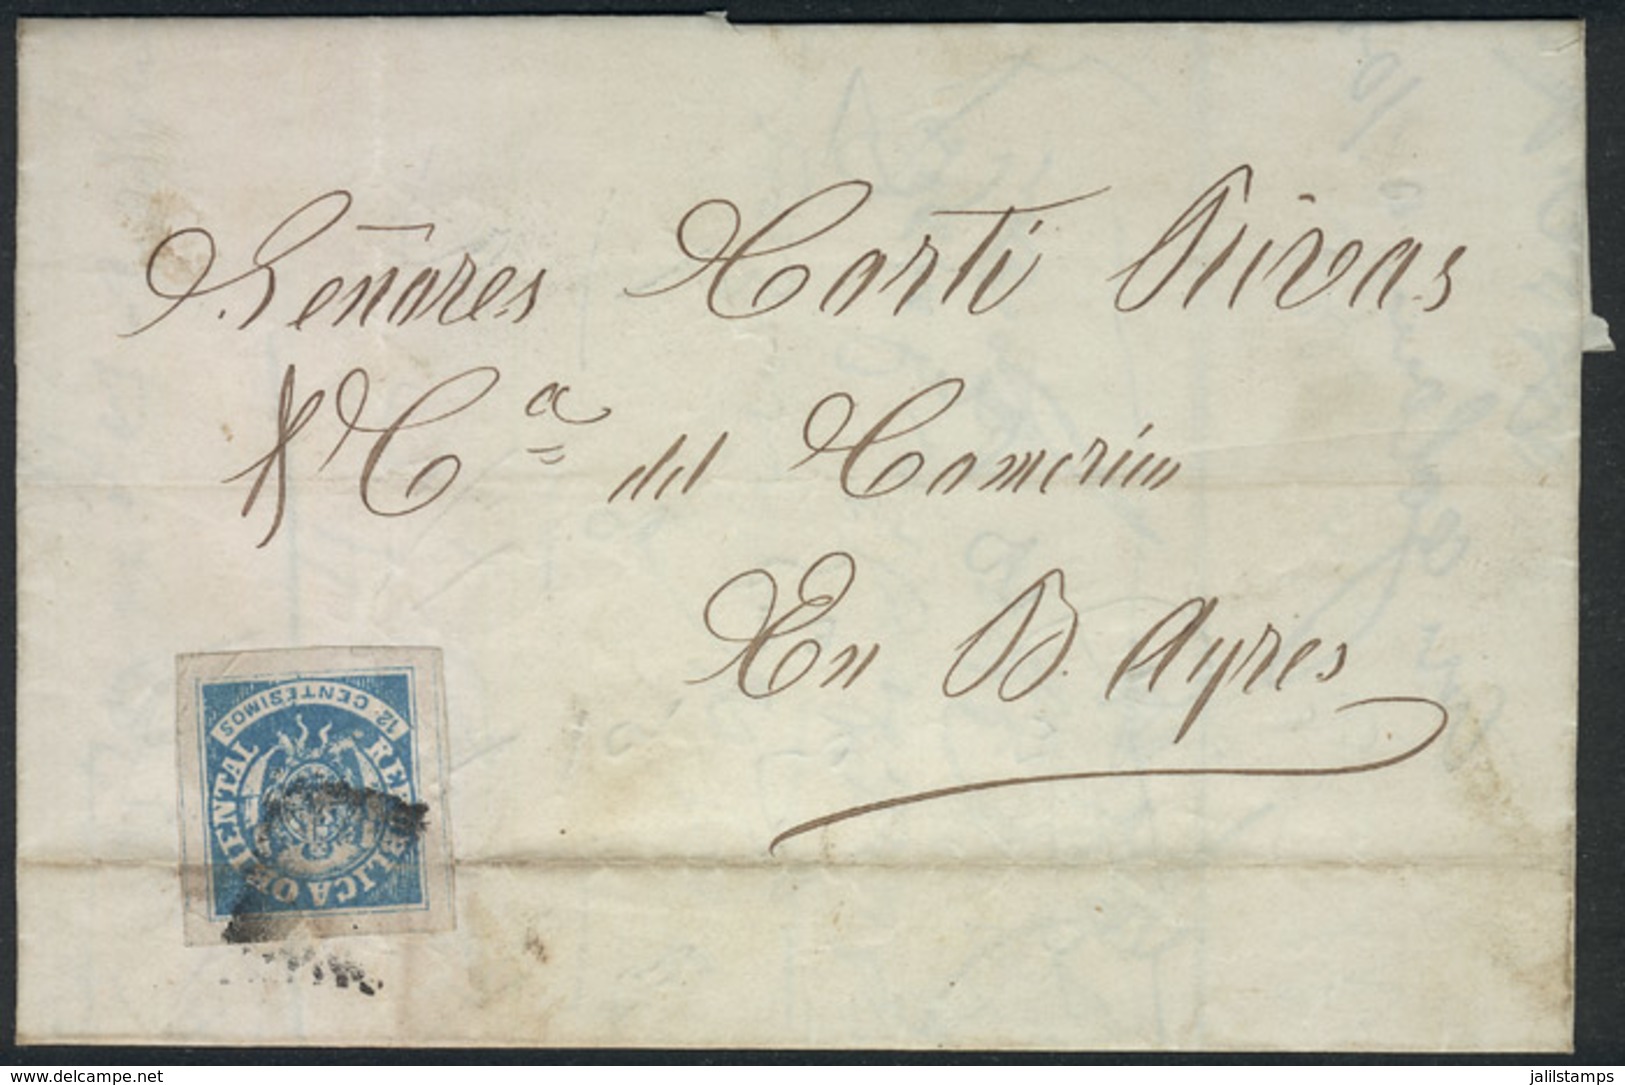 Señores Martí Rivas
& Cª del Comercio
En B. Ayres
12. CENTESIMOS
REPUBLICA ORIENTAL
www.delcampe.net
jalilstamps